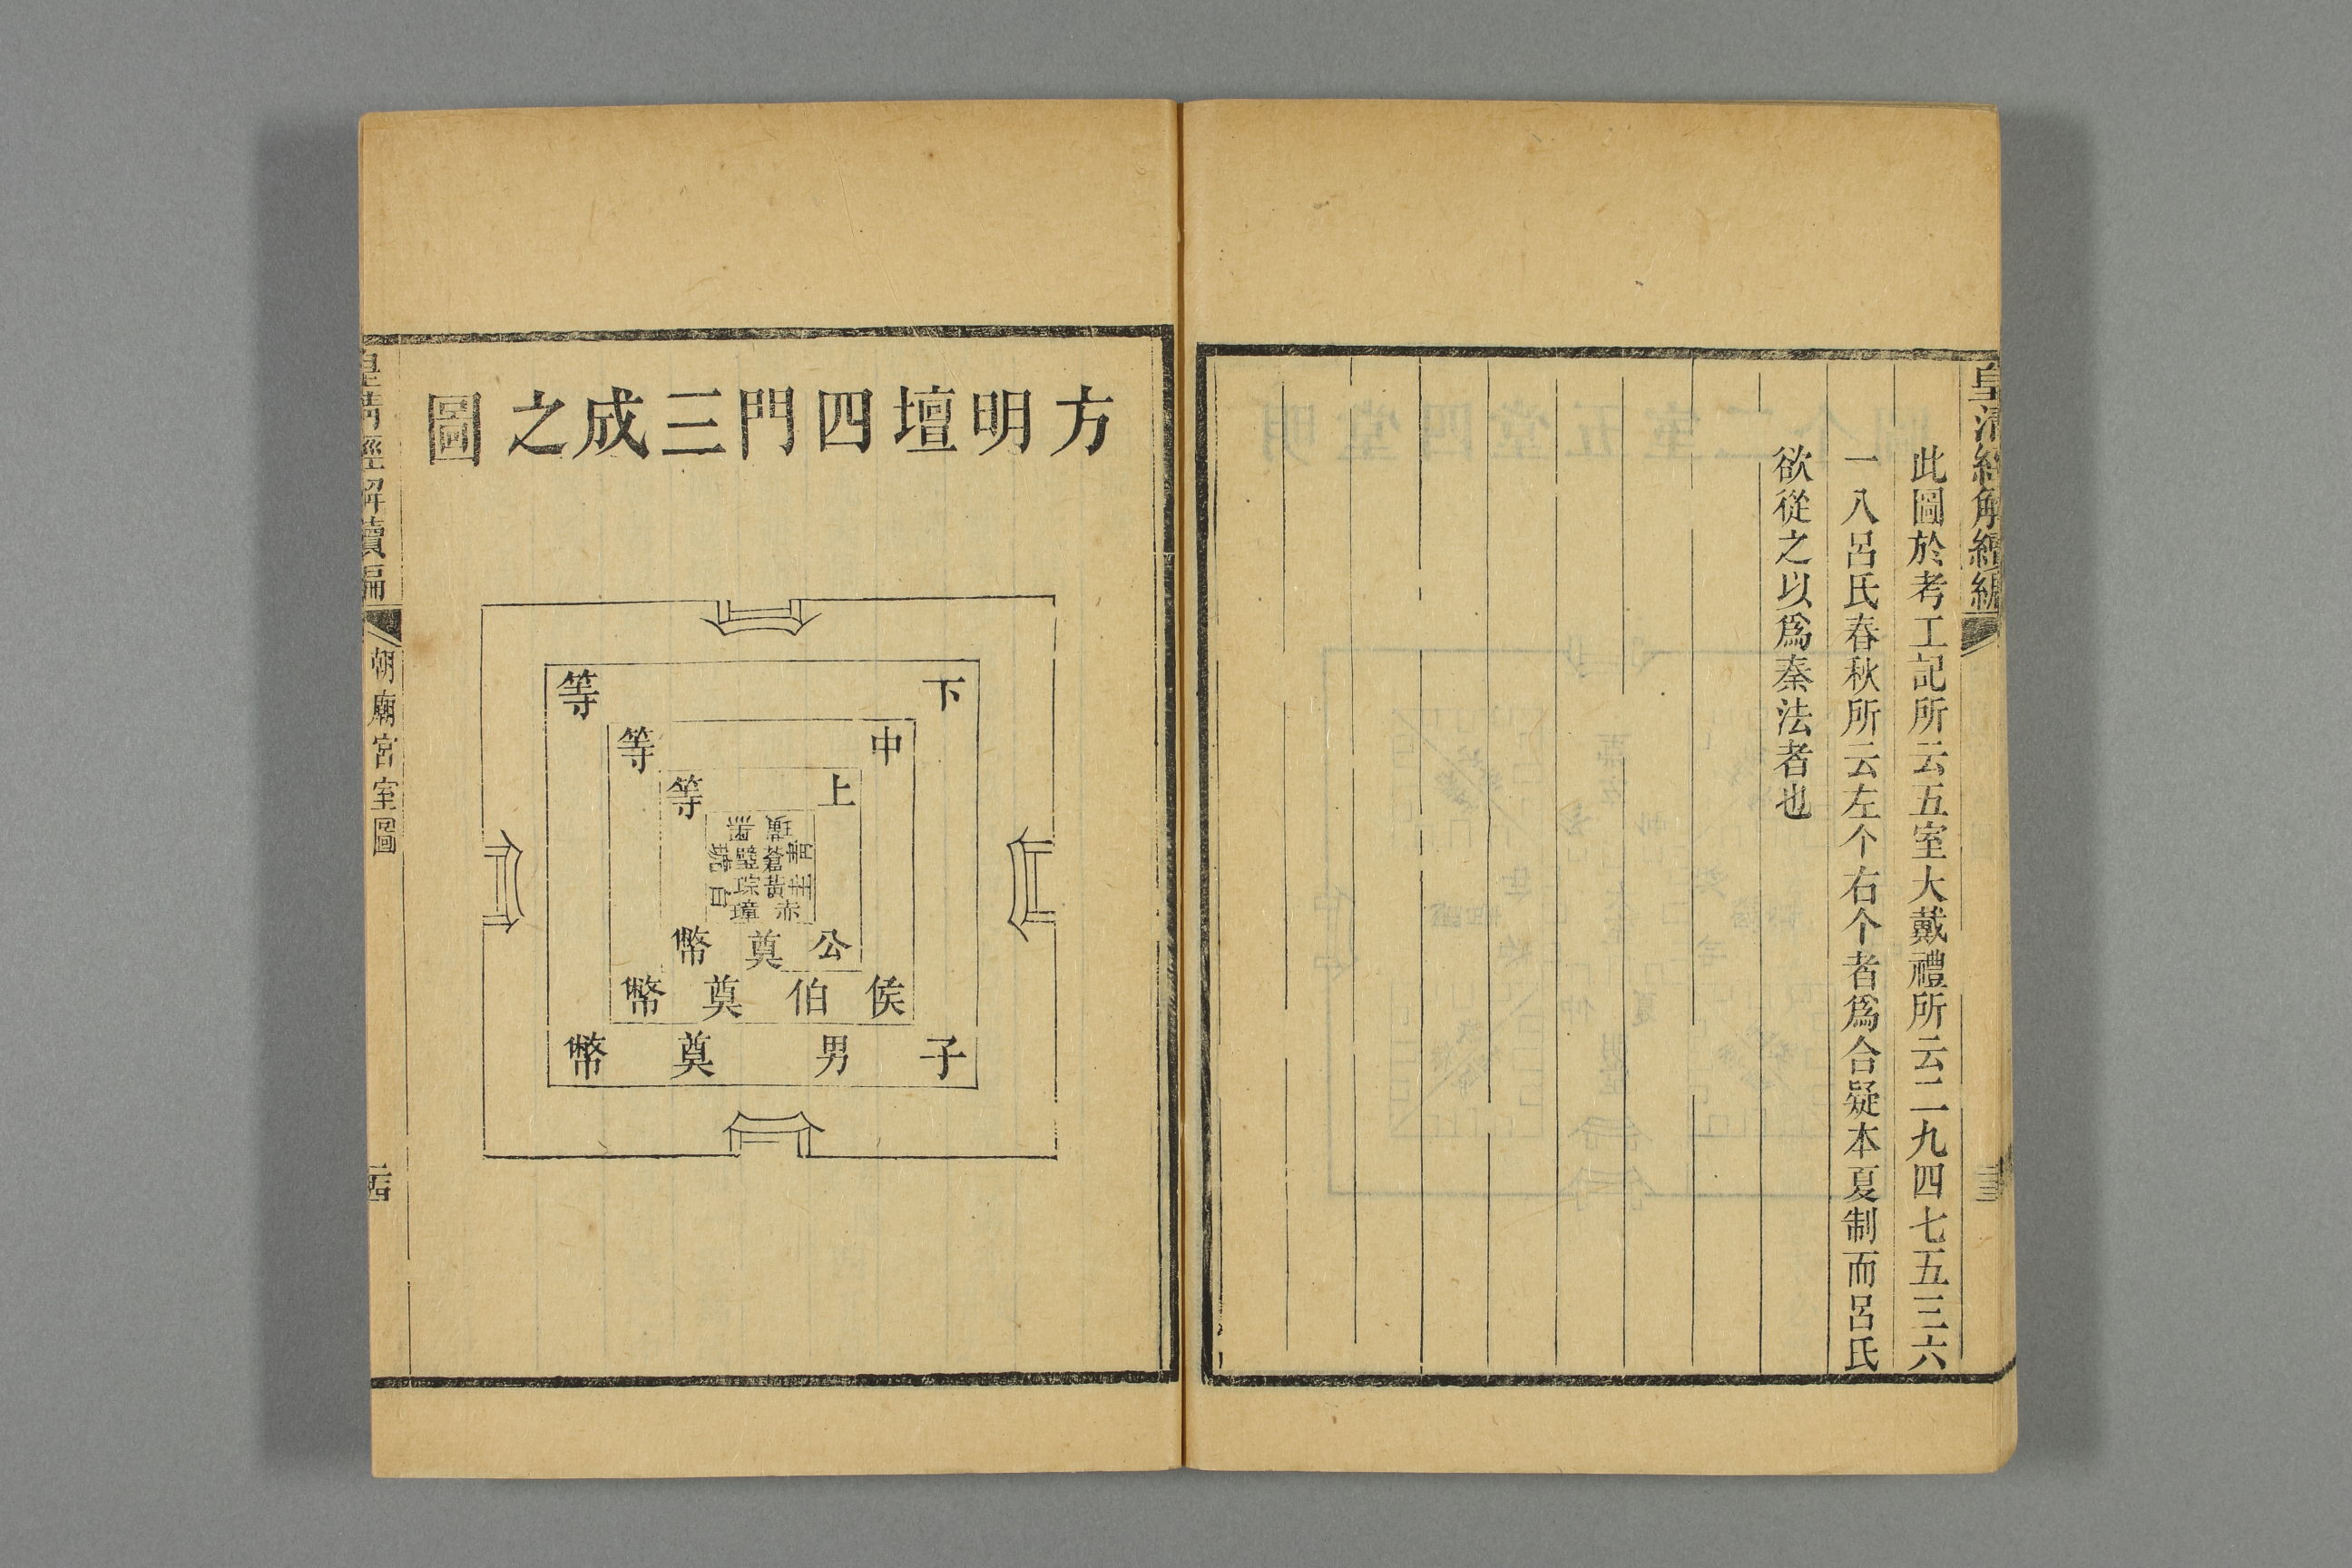 皇清經解續編
此圖於考工記所云五室大戴禮所云二九四七五三六
一八呂氏春秋所云左个右个者爲合疑本夏制而呂氏
欲從之以爲秦法者也
方明壇四門三成之圖
下等
中等
上等
青圭
赤璋
白琥
黑璜
蒼璧
黃琮
公奠幣
侯伯奠幣
子男奠幣
皇清經解續編
朝廟宮室圖